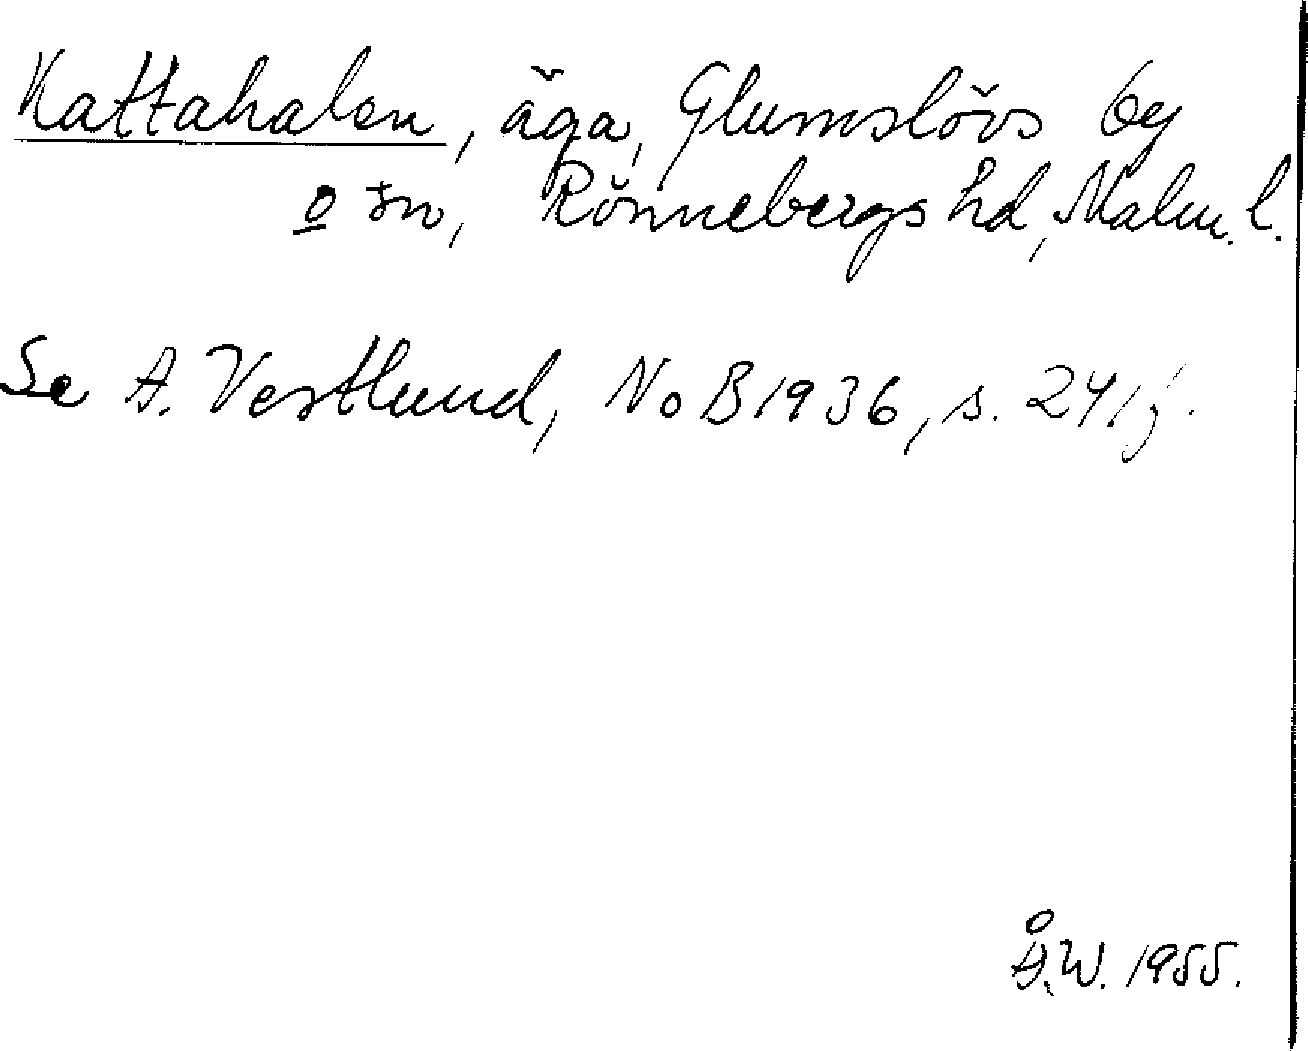 Kattahalen, äga, Glumslövs by
o sn, Rönnebergs hd, Malm. l.
Se A. Vestlund, NoB 1936, s. 241 f.
Å.W. 1955.